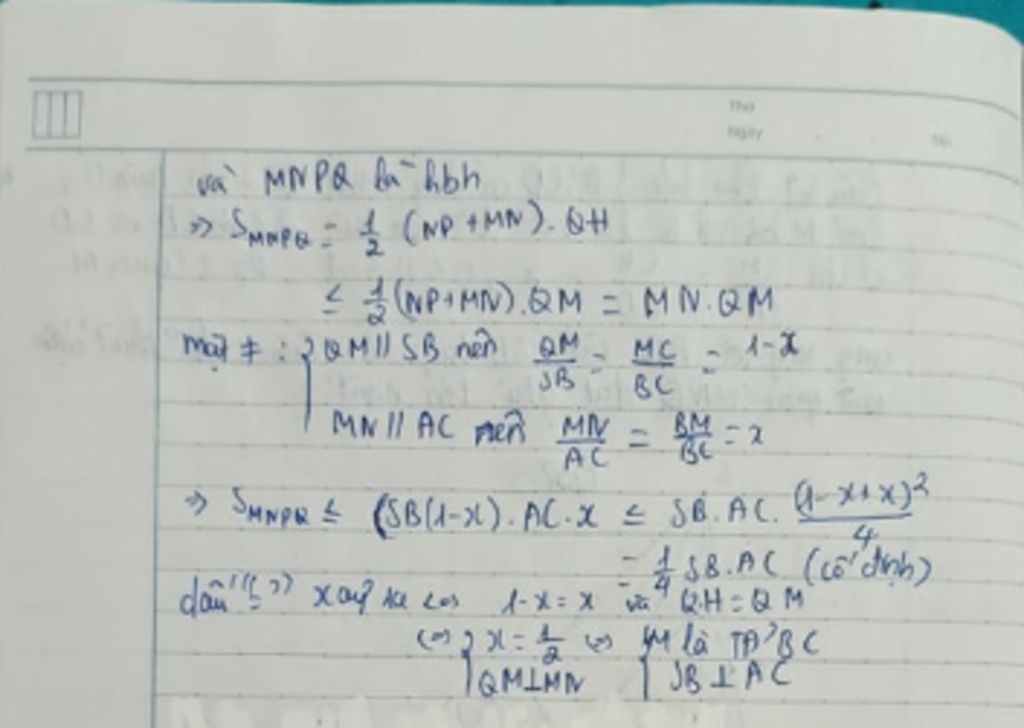 Thứ
Ngày
No
và MNPQ là hbh
=> S_MNPQ = 1/2 (NP + MN). QH
≤ 1/2 (NP + MN). QM = MN. QM
mặt ≠ : { QM // SB nên QM/SB = MC/BC = 1-x
MN // AC nên MN/AC = BM/BC = x
=> S_MNPQ ≤ (SB(1-x). AC. x ≤ SB. AC. (1-x+x)²/4
= 1/4 SB. AC (cố định)
dấu "=" xảy ra <=> 1-x = x và QH = QM
<=> { x = 1/2 <=> { M là TĐ BC
QM ⊥ MN SB ⊥ AC